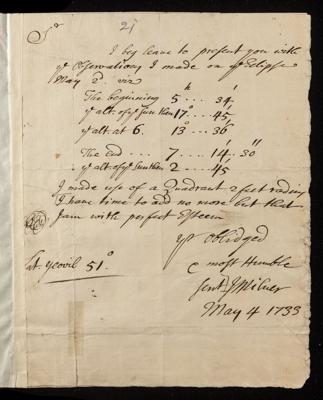 Sr
21
I beg leave to present you with
ye Observations I made on ye Eclipse
May 2d. viz
The beginning 5h ... 34'
ye alt. of ye Sun then 17° ... 45'
ye alt. at 6. 13° ... 36'
The end ... 7 ... 14' .. 30"
ye alt. of ye Sun then 2 ... 45
I made use of a Quadrant 2 feet radius
I have time to add no more but that
I am with perfect Esteem
yr Obliged
& most Humble
Servt J Milner
Lat. Yeovil 51°
May 4 1733